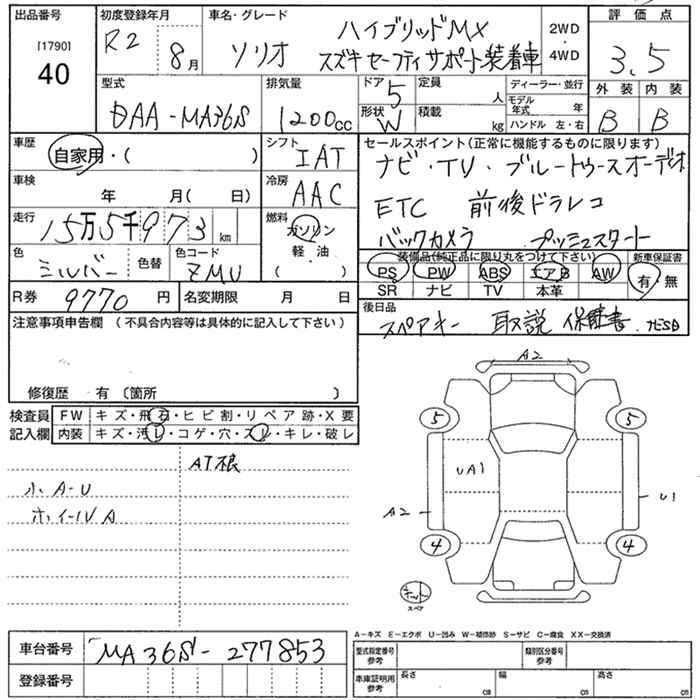 出品番号
[1790]
40
初度登録年月
R2
8月
車名・グレード
ソリオ
ハイブリッドMX
スズキセーフティサポート装着車
2WD
・
4WD
評価点
3.5
外装 内装
B B
型式
DAA-MA36S
排気量
1200cc
ドア
5
形状
W
定員
人
積載
kg
ディーラー・並行
モデル年式 年
ハンドル 左・右
車歴
自家用・( )
シフト
IAT
車検
年 月( 日)
冷房
AAC
走行
15万5千973km
燃料
ガソリン
軽油
( )
色
シルバー
色替
色コード
ZMU
R券 9770円
名変期限 月 日
セールスポイント(正常に機能するものに限ります)
ナビ・TV・ブルートゥースオーデオ
ETC 前後ドラレコ
バックカメラ プッシュスタート
装備品(純正品に限り丸をつけて下さい)
PS PW ABS エアB AW
SR ナビ TV 本革
新車保証書
有・無
後日品
スペアキー 取説 保証書
注意事項申告欄 (不具合内容等は具体的に記入して下さい)
修復歴 有 〔箇所 〕
検査員記入欄
FW キズ・飛石・ヒビ割・リペア跡・X要
内装 キズ・汚レ・コゲ・穴・スレ・キレ・破レ
AT根
小A-U
ホイールA
A2
5 5
UA1
A2
U1
4 4
スペア
A−キズ E−エクボ U−凹み W−補修跡 S−サビ C−腐食 XX−交換済
車台番号 MA36S-277853
登録番号
型式指定番号
参考
類別区分番号
参考
車庫証明用
参考
長さ cm
幅 cm
高さ cm